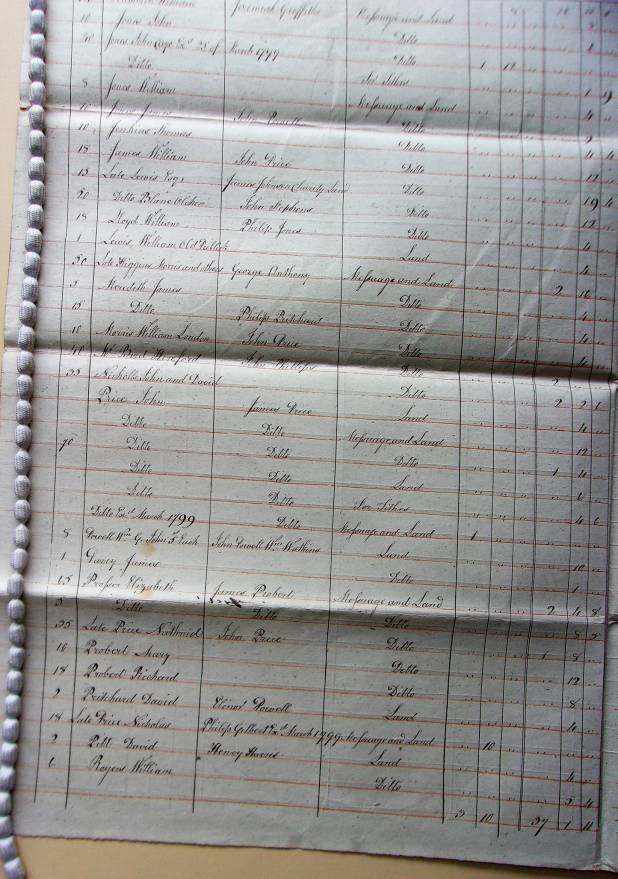 Jeremiah Griffiths Messuage and Land
10 Jones John Ditto
40 Jones John Exd 25 of March 1799 Ditto 1 12
Ditto for Tithes 1 9
8 Jones William Messuage and Land 4
10 Jones James John Powell Ditto 2
10 Jenkins Thomas Ditto 4 4
18 James William John Price Ditto 12
15 Late Lewis Esqr James Johnson Charity Land Ditto 19 4
20 Ditto Blaen Olchon John Stephens Ditto 12
18 Lloyd William Philip Jones Ditto 4
1 Lewis William Old Land 4
50 Late Higgins Morris and others George Anthony Messuage and Land 2 16
5 Meredith James Ditto 4
15 Ditto Philip Pritchard Ditto 4
10 Morris William London John Price Ditto 4
40 Hereford John Phillips Ditto 2
35 Nicholls John and David Ditto 2 2 6
Price John James Price Land 4
Ditto Ditto Messuage and Land 12
70 Ditto Ditto Ditto 1 4
Ditto Ditto Land 6
Ditto Ditto For Tithes 4 6
Ditto Exd March 1799 Ditto Messuage and Land 1
8 Powell Wm G. John 5s Each John Powell Wm Watkins Land 10
1 James Ditto 1
15 Prosser Elizabeth James Probert Messuage and Land 2 4 8
5 Ditto Ditto Ditto 8 5
35 Late Price Nathaniel John Price Ditto 1 8
16 Probert Mary Ditto 12
18 Probert Richard Ditto 8
2 Pritchard David Elinor Powell Land 4
18 Late Price Nicholas Philip Gilbert Exd March 1799 Messuage and Land 10
2 Pitt David Henry Harris Land 4
6 Rogers William Ditto 5 4
5 10 37 1 11